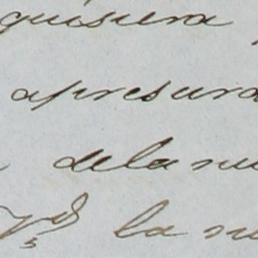 quisiera
apresura
dela nu
la nu